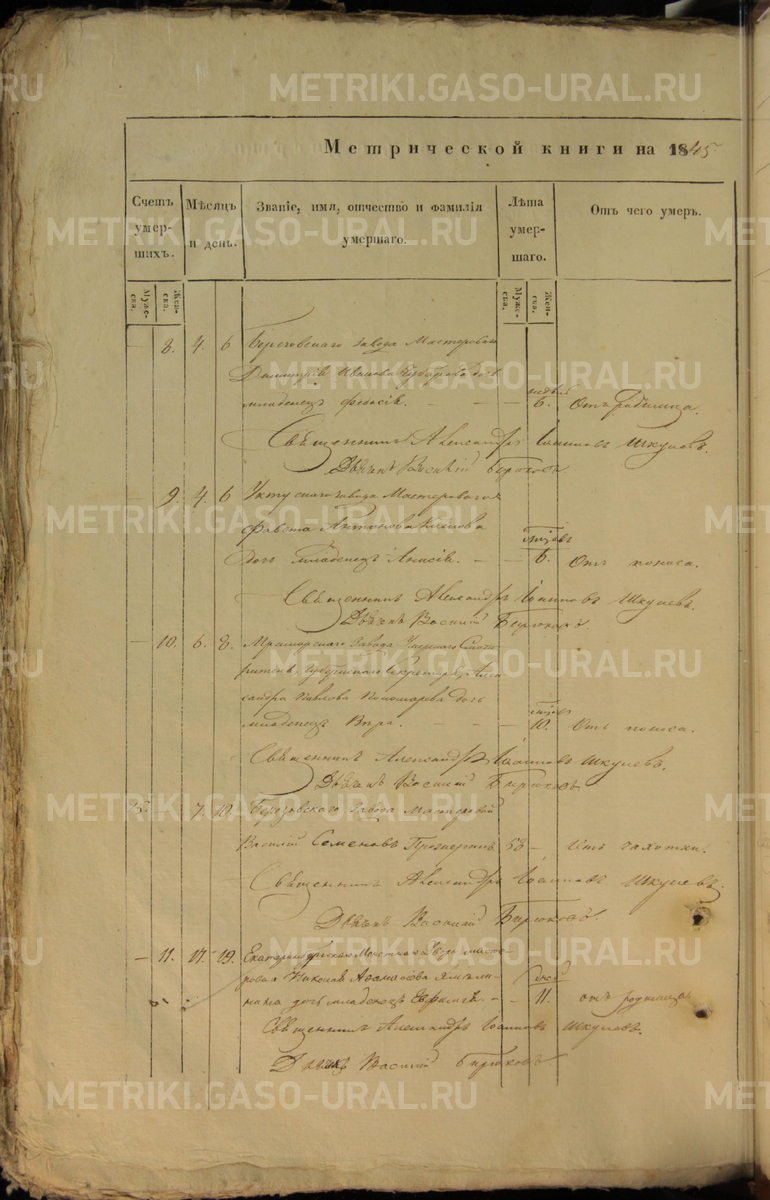 METRIKI.GASO-URAL.RU
Метрической книги на 1845
Счетъ умершихъ.
Мѣсяцъ и день.
Званіе, имя, отчество и фамилія умершаго.
Лѣта умершаго.
Отъ чего умеръ.
Мужеска.
Женска.
Мужеска.
Женска.
— 8. 4. 6 Березовскаго завода Мастероваго
Димитрія Иванова дочь
младенецъ — — 6. Отъ родимца.
Священникъ Александръ Іоанновъ Шкулевъ.
Дьячекъ Василій Бирюковъ.
— 9. 4. 6 Уктусскаго завода Мастероваго
Антонова
дочь младенецъ Анисія. — — 6. Отъ поноса.
Священникъ Александръ Іоанновъ Шкулевъ.
Дьячекъ Василій Бирюковъ.
— 10. 6. 8. Мраморскаго завода
Губернскаго Секретаря Алек
сандра Павлова Пономарева дочь
младенецъ Вѣра. — — — 10. Отъ поноса.
Священникъ Александръ Іоанновъ Шкулевъ.
Дьячекъ Василій Бирюковъ
15. — 7. 10. Березовскаго завода Мастеровой
Василій Семеновъ 53 — Отъ чахотки.
Священникъ Александръ Іоанновъ Шкулевъ.
Дьячекъ Василій Бирюковъ.
— 11. 17. 19. масте
роваго Николая Аѳанасова
дочь младенецъ — — 11. отъ родимца
Священникъ Александръ Іоанновъ Шкулевъ.
Дьячекъ Василій Бирюковъ